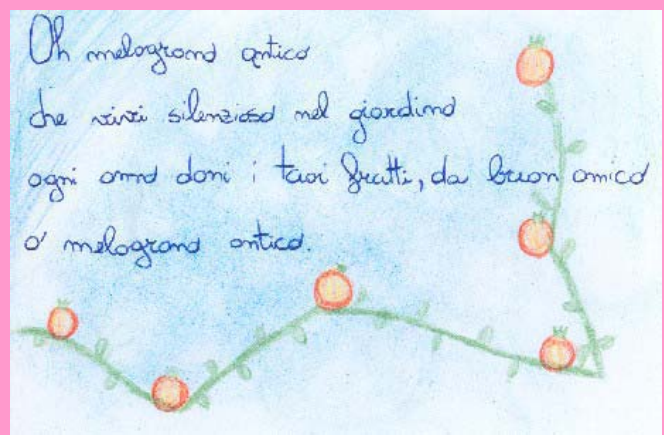 Oh melograno antico
che vivi silenzioso nel giardino
ogni anno doni i tuoi frutti, da buon amico
o' melograno antico.